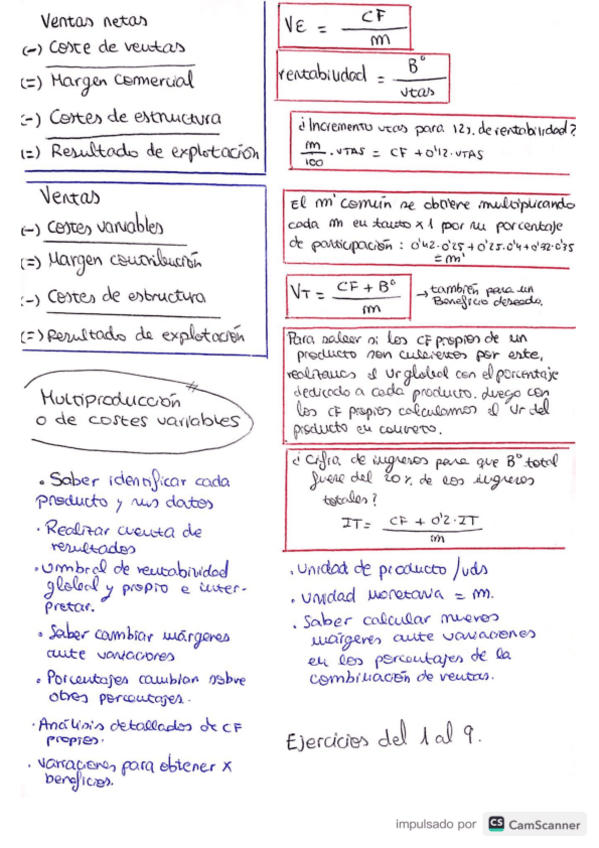 Ventas netas
(-) Coste de ventas
(=) Margen comercial
(-) Costes de estructura
(=) Resultado de explotación
Ventas
(-) Costes variables
(=) Margen contribución
(-) Costes de estructura
(=) Resultado de explotación
Multiproducción
o de costes variables
• Saber identificar cada
producto y sus datos
• Realizar cuenta de
resultados
• Umbral de rentabilidad
global y propio e inter-
pretar.
• Saber cambiar márgenes
ante variaciones
• Porcentajes cambian sobre
otros porcentajes.
• Análisis detallados de CF
propios.
• Variaciones para obtener x
beneficios.
VE = CF / m
rentabilidad = Bº / vtas
¿Incremento vtas para 12% de rentabilidad?
m/100 · VTAS = CF + 0'12 · VTAS
El m' común se obtiene multiplicando
cada m en tanto x 1 por su porcentaje
de participación: 0'42·0'25 + 0'25·0'4 + 0'32·0'35
= m'
VT = CF + Bº / m → también para un
Beneficio deseado.
Para saber si los CF propios de un
producto son cubiertos por este,
realizamos el Ur global con el porcentaje
dedicado a cada producto. Luego con
los CF propios calculamos el Ur del
producto en concreto.
¿Cifra de ingresos para que Bº total
fuese del 20% de los ingresos
totales?
IT = CF + 0'2·IT / m
• Unidad de producto / uds
• Unidad monetaria = m.
• Saber calcular nuevos
márgenes ante variaciones
en los porcentajes de la
combinación de ventas.
Ejercicios del 1 al 9.
impulsado por CS CamScanner